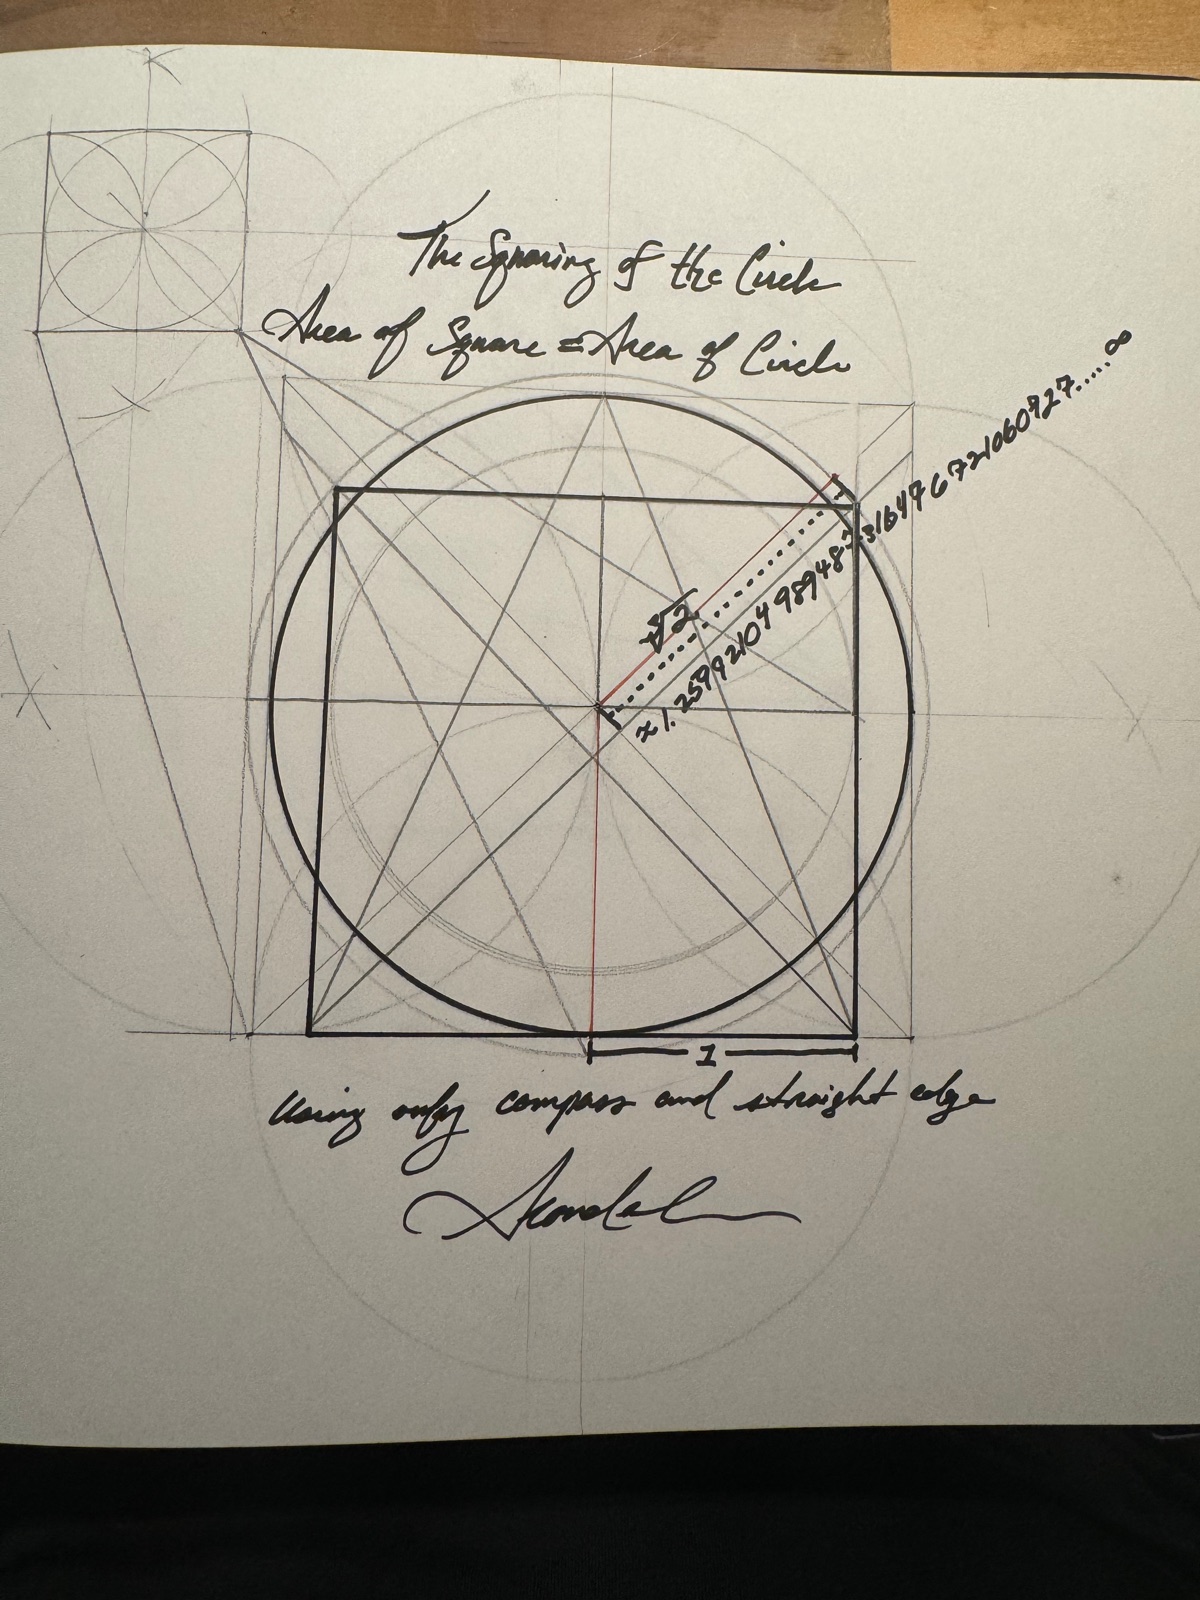 The Squaring of the Circle
Area of Square = Area of Circle
∛2
≈1.25992104989487316476721060727.....∞
1
Using only compass and straight edge